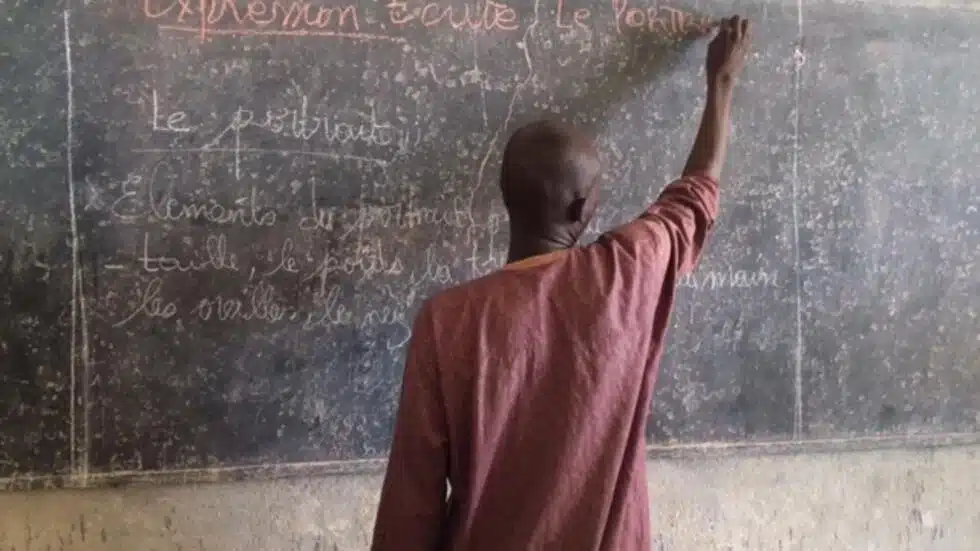 Expression Ecrite : Le Portrai
Le portrait
Elements du portrait
- taille, le poids, la main
les oreilles, le nez